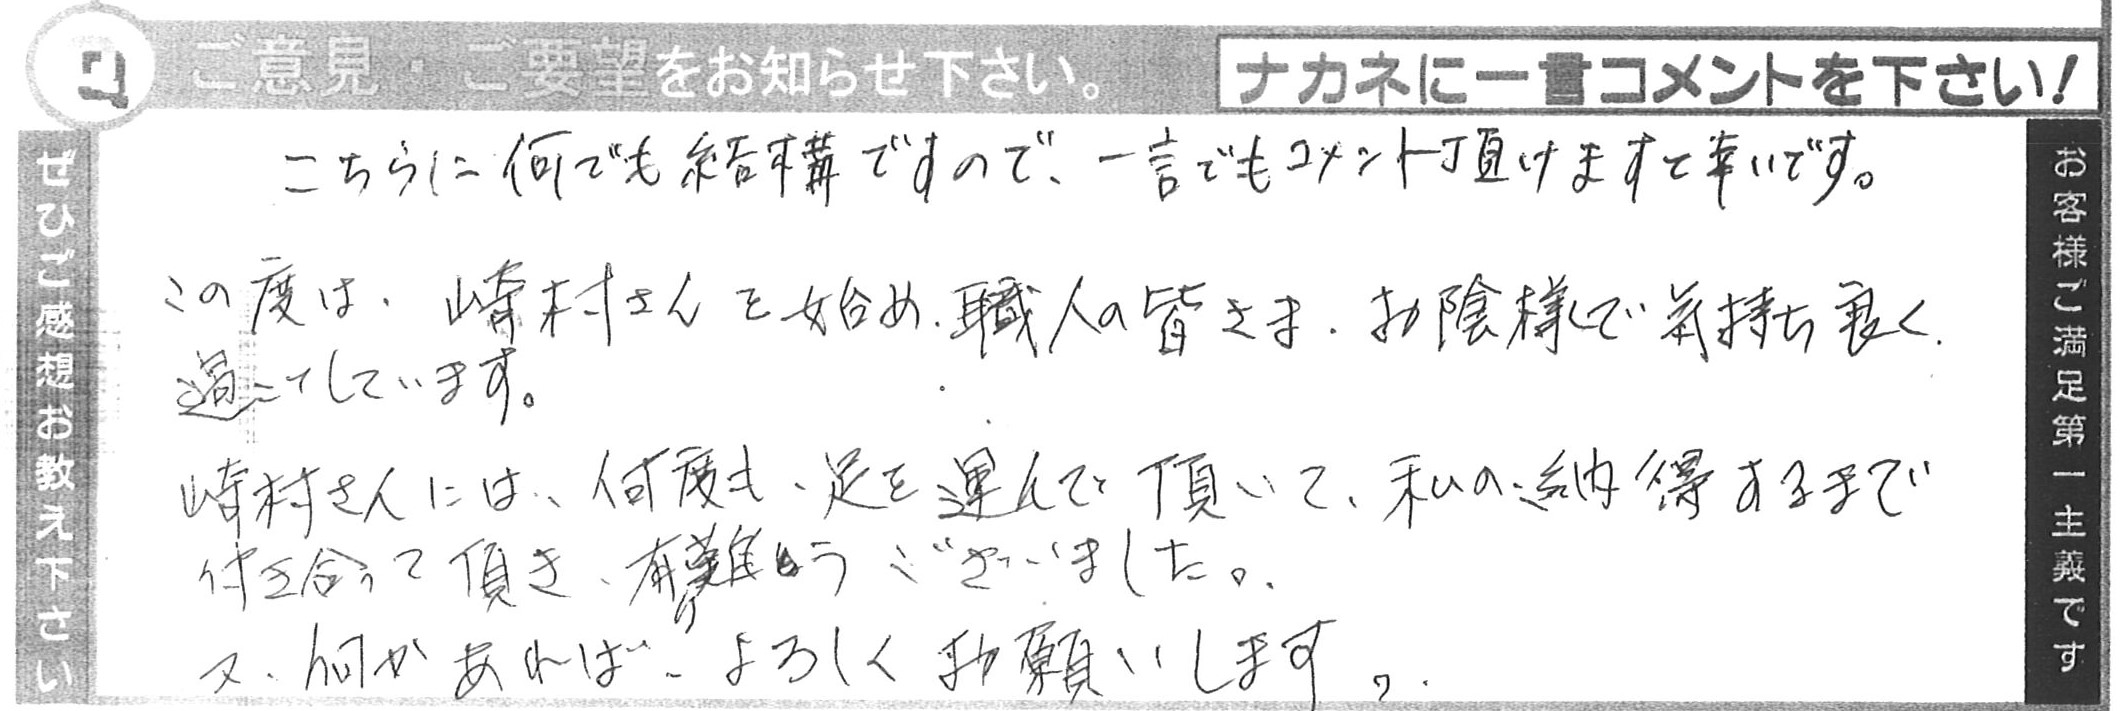 ご意見・ご要望をお知らせ下さい。
ナカネに一言コメントを下さい!
ぜひご感想お教え下さい
こちらに何でも結構ですので、一言でもコメント頂けますと幸いです。
この度は、崎村さんを始め、職人の皆さま、お陰様で気持ち良く
過ごしています。
崎村さんには、何度も、足を運んで頂いて、私の納得するまで
付き合って頂き、有難うございました。
又、何かあれば、よろしくお願いします。
お客様ご満足第一主義です